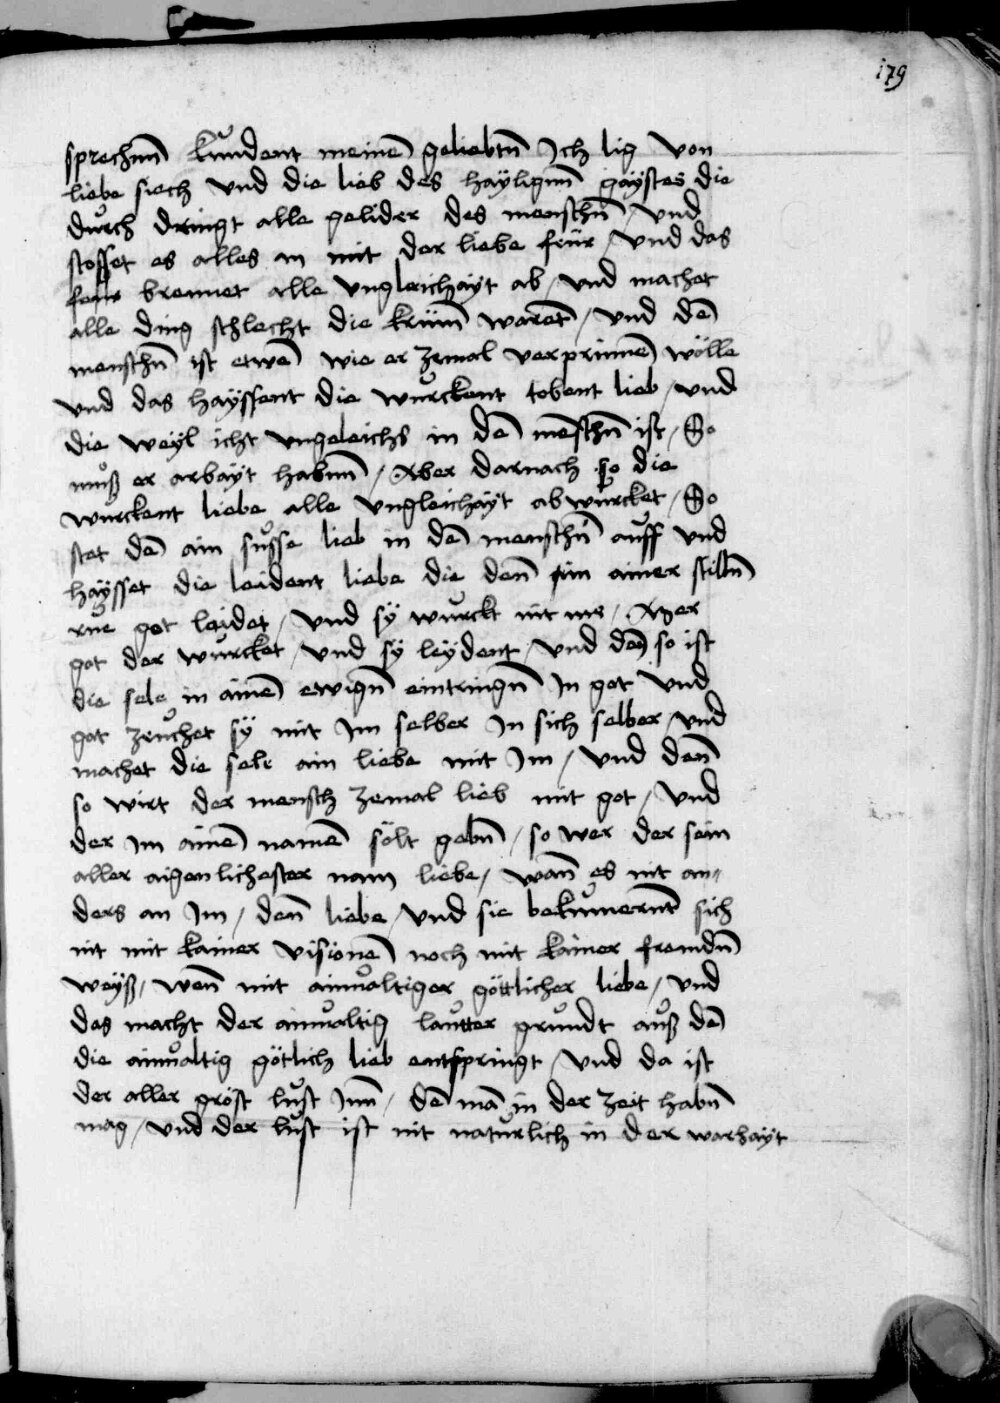 179
sprechnn kundent meinē geliebtn̄ Ich lig von
liebe siech vnd die lieb des haylignn gaystes die
durch dringt alle gelider des menschn̄ / vnd
stosset es alles an mit der liebe feur / vnd das
feur brennet alle vngleichayt ab / vnd machet
alle ding schlecht die krūm warēt / vnd dē
menschn̄ ist etwē wie er zemal verprinnē wölle
vnd das hayssent die wurckent tobent lieb / vnd
die weyl icht vngeleichs in dē mēschn̄ ist / So
muß er arbayt habnn / Aber darnach so die
wurckent liebe alle vngleichayt ab wurcket / So
stet dē ain susse lieb in dē menschn̄ auff vnd
haysset die leident liebe die den̄ in ainer stilln̄
rue got leidet / vnd sÿ wurckt nit me / Aber
got der wurcket / vnd sÿ leydent / vnd den̄ so ist
die sele in ainē ewign̄ eintringn̄ In got vnd
got zeuchet sÿ mit Im selber In sich selber / vnd
machet die sele ain liebe mit Im / vnd den̄
so wirt der mensch zemal lieb mit got / vnd
der im ainē namē sölt gebn̄ / so wer der sein
aller aigenlichester nam liebe / wan̄ es nit an¬
ders an Im / den̄ liebe / vnd sie bekumernt sich
nit mit kainer visionē noch mit kainer fremdn̄
weyß / wen̄ mit ainualtiger göttlicher liebe / vnd
das macht der ainualtig lautter grundt auß dē
die ainualtig götlich lieb entspringt / vnd da ist
der aller gröst lust Inn / dē mā in der zeit habn̄
mag / vnd der lust ist nit naturlich in der warhayt